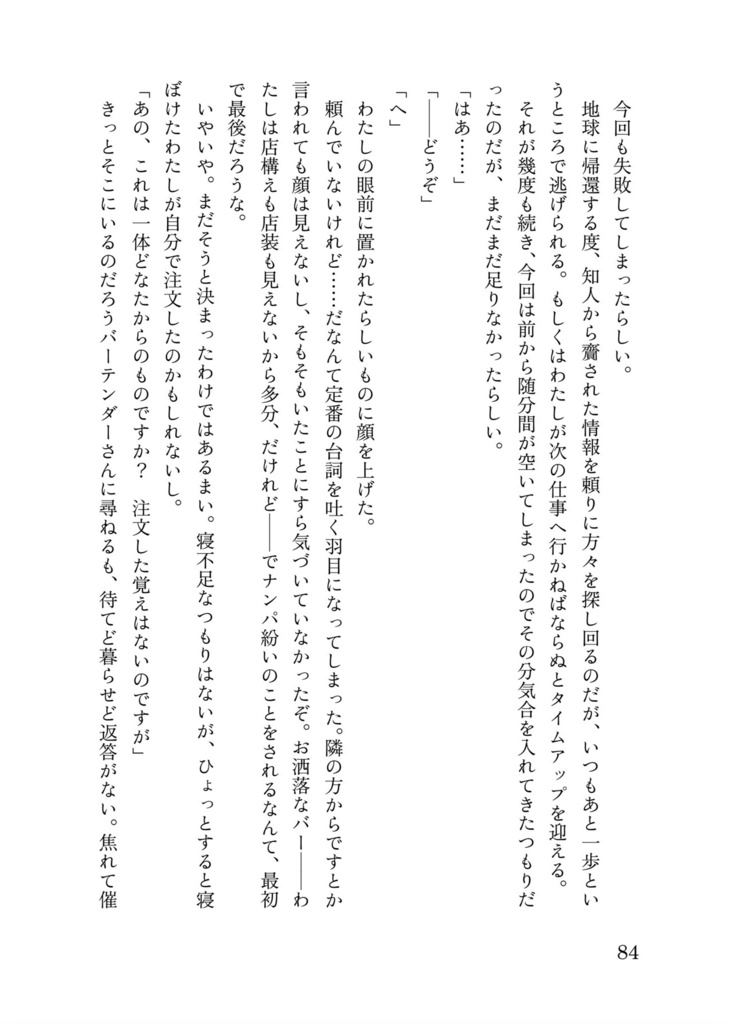 今回も失敗してしまったらしい。
地球に帰還する度、知人から齎された情報を頼りに方々を探し回るのだが、いつもあと一歩とい
うところで逃げられる。もしくはわたしが次の仕事へ行かねばならぬとタイムアップを迎える。
それが幾度も続き、今回は前から随分間が空いてしまったのでその分気合を入れてきたつもりだ
ったのだが、まだまだ足りなかったらしい。
「はあ……」
「――どうぞ」
「へ」
わたしの眼前に置かれたらしいものに顔を上げた。
頼んでいないけれど……だなんて定番の台詞を吐く羽目になってしまった。隣の方からですとか
言われても顔は見えないし、そもそもいたことにすら気づいていなかったぞ。お洒落なバー――わ
たしは店構えも店装も見えないから多分、だけれど――でナンパ紛いのことをされるなんて、最初
で最後だろうな。
いやいや。まだそうと決まったわけではあるまい。寝不足なつもりはないが、ひょっとすると寝
ぼけたわたしが自分で注文したのかもしれないし。
「あの、これは一体どなたからのものですか？　注文した覚えはないのですが」
きっとそこにいるのだろうバーテンダーさんに尋ねるも、待てど暮らせど返答がない。焦れて催
84